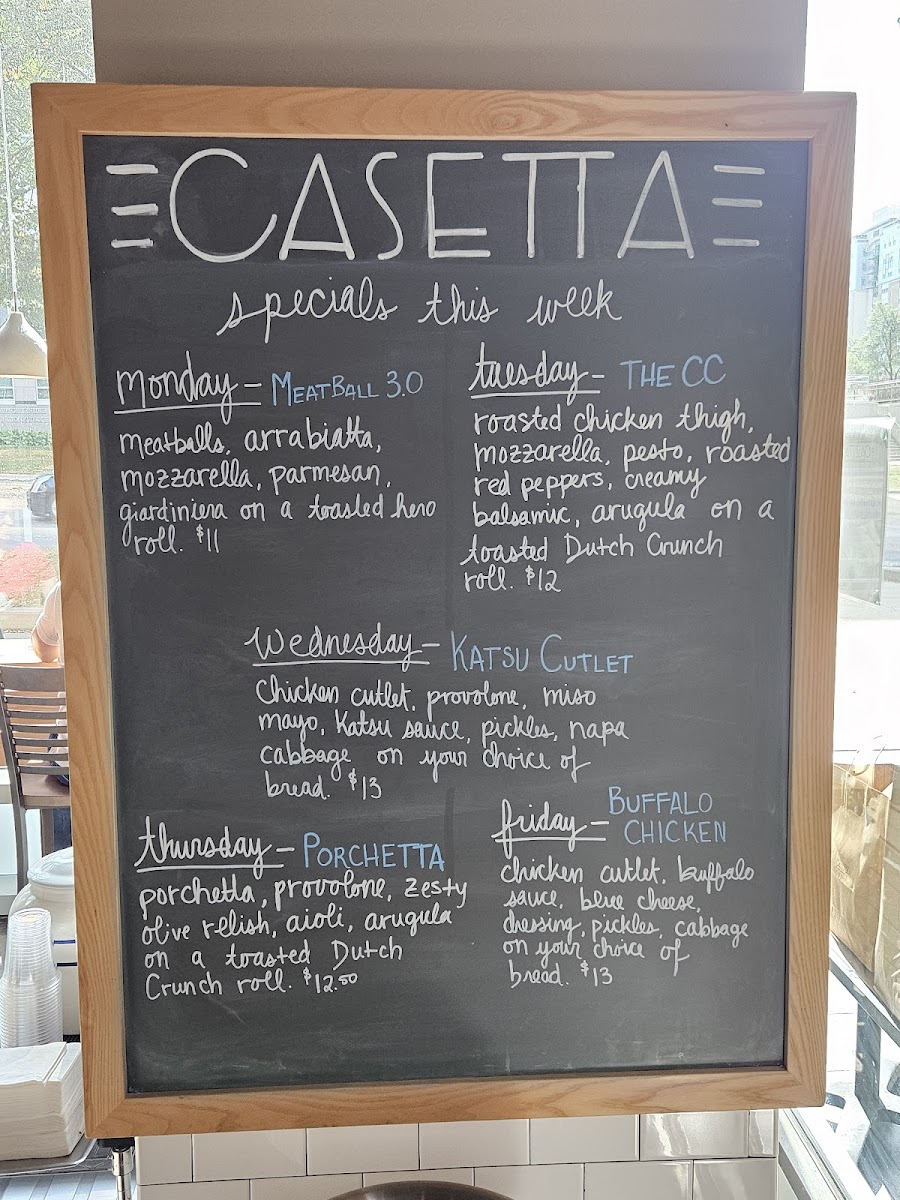 CASETTA
specials this week
monday - MEATBALL 3.0
meatballs, arrabiatta,
mozzarella, parmesan,
giardiniera on a toasted hero
roll. $11
tuesday - THE CC
roasted chicken thigh,
mozzarella, pesto, roasted
red peppers, creamy
balsamic, arugula on a
toasted Dutch Crunch
roll. $12
wednesday - KATSU CUTLET
Chicken cutlet, provolone, miso
mayo, Katsu sauce, pickles, napa
cabbage on your choice of
bread. $13
thursday - PORCHETTA
porchetta, provolone, zesty
olive relish, aioli, arugula
on a toasted Dutch
Crunch roll. $12.50
friday - BUFFALO
CHICKEN
chicken cutlet, buffalo
sauce, blue cheese,
dressing, pickles, cabbage
on your choice of
bread. $13